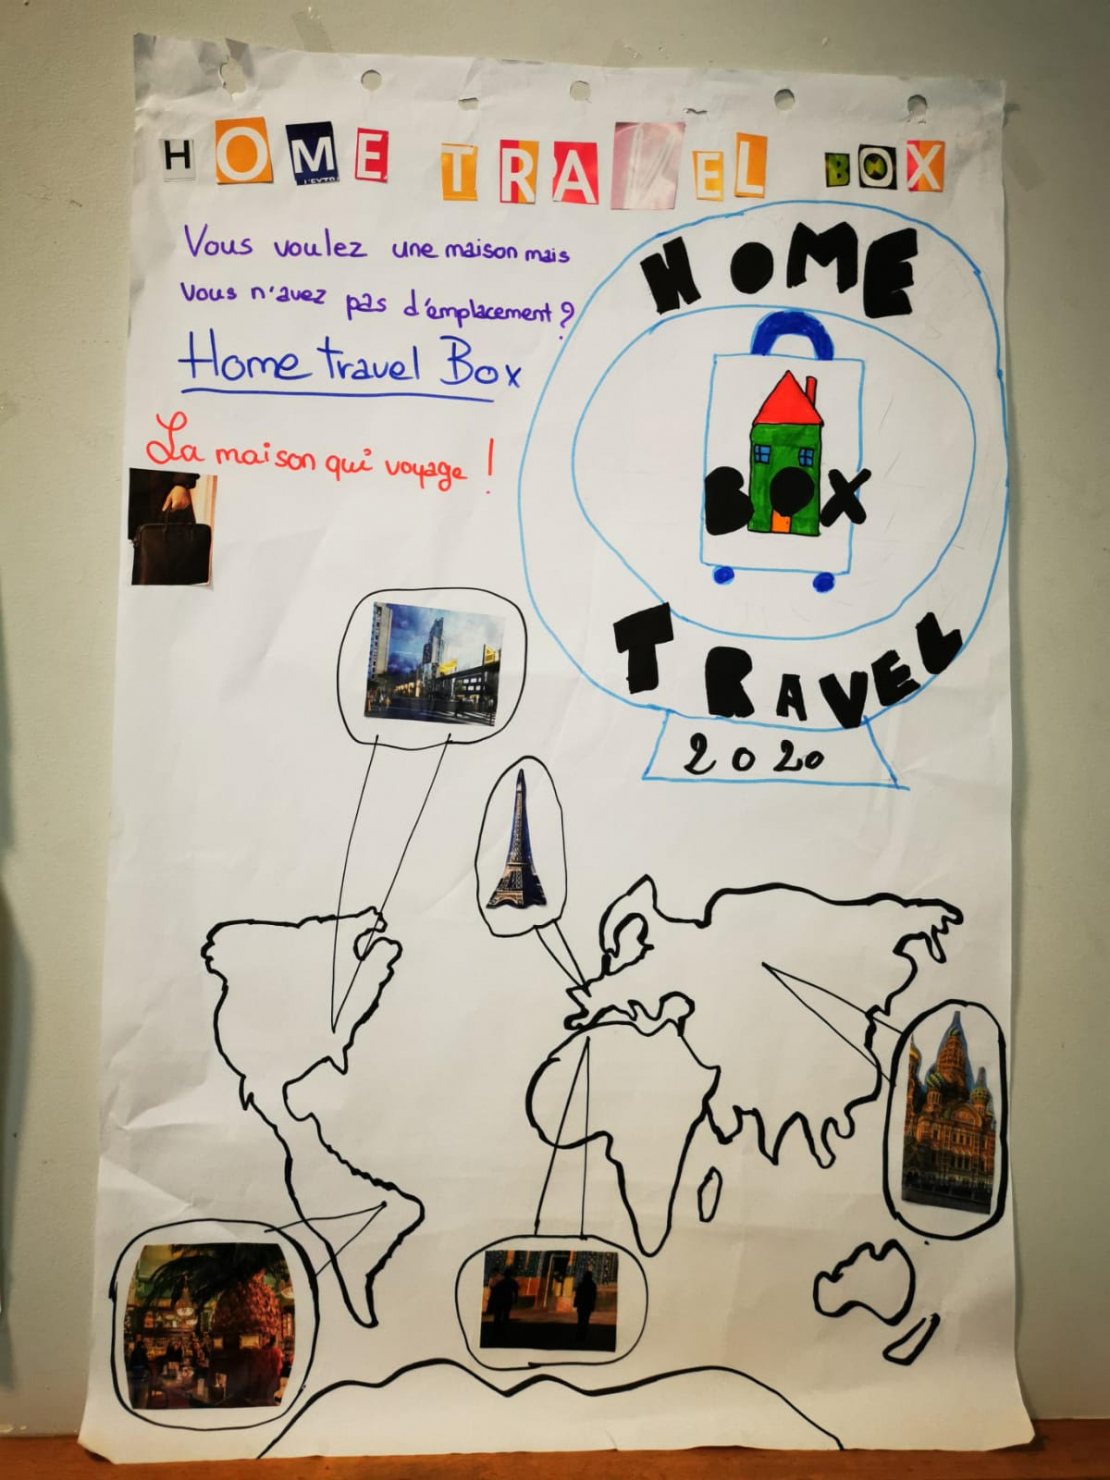 HOME TRAVEL BOX
Vous voulez une maison mais
vous n'avez pas d'emplacement ?
Home travel Box
La maison qui voyage !
HOME
BOX
TRAVEL
2020